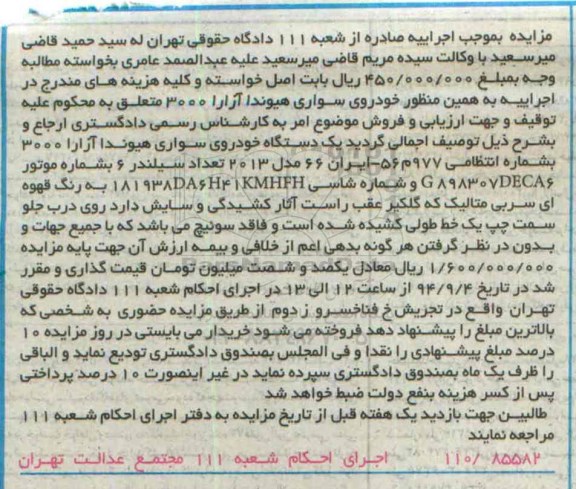 مزایده بموجب اجراییه صادره از شعبه ۱۱۱ دادگاه حقوقی تهران له سید حمید قاضی
میرسعید با وکالت سیده مریم قاضی میرسعید علیه عبدالصمد عامری بخواسته مطالبه
وجه بمبلغ ۴۵۰/۰۰۰/۰۰۰ ریال بابت اصل خواسته و کلیه هزینه های مندرج در
اجراییه به همین منظور خودروی سواری هیوندا آزارا ۳۰۰۰ متعلق به محکوم علیه
توقیف و جهت ارزیابی و فروش موضوع امر به کارشناس رسمی دادگستری ارجاع و
بشرح ذیل توصیف اجمالی گردید یک دستگاه خودروی سواری هیوندا آزارا ۳۰۰۰
بشماره انتظامی ۵۶۵۹۷۷-ایران ۶۶ مدل ۲۰۱۳ تعداد سیلندر ۶ بشماره موتور
G۸۹۸۳۰۷DECA۶ و شماره شاسی ۱۸۱۹۳۸DA۶H۴۱KMHFH به رنگ قهوه
ای سربی متالیک که گلگیر عقب راست آثار کشیدگی و سایش دارد روی درب جلو
سمت چپ یک خط طولی کشیده شده است و فاقد سوئیچ می باشد که با جمیع جهات و
بدون در نظر گرفتن هر گونه بدهی اعم از خلافی و بیمه ارزش آن جهت پایه مزایده
۱/۶۰۰/۰۰۰/۰۰۰ ریال معادل یکصد و شصت میلیون تومان قیمت گذاری و مقرر
شد در تاریخ ۹۴/۹/۴ از ساعت ۱۲ الی ۱۳ در اجرای احکام شعبه ۱۱۱ دادگاه حقوقی
تهران واقع در تجریش خ فناخسرو ز دوم از طریق مزایده حضوری به شخصی که
بالاترین مبلغ را پیشنهاد دهد فروخته می شود خریدار می بایستی در روز مزایده ۱۰
درصد مبلغ پیشنهادی را نقدا و فی المجلس بصندوق دادگستری تودیع نماید و الباقی
را ظرف یک ماه بصندوق دادگستری سپرده نماید در غیر اینصورت ۱۰ درصد پرداختی
پس از کسر هزینه بنفع دولت ضبط خواهد شد
طالبین جهت بازدید یک هفته قبل از تاریخ مزایده به دفتر اجرای احکام شعبه ۱۱۱
مراجعه نمایند
۱۱۰/ ۸۵۵۸۲ اجرای احکام شعبه ۱۱۱ مجتمع عدالت تهران